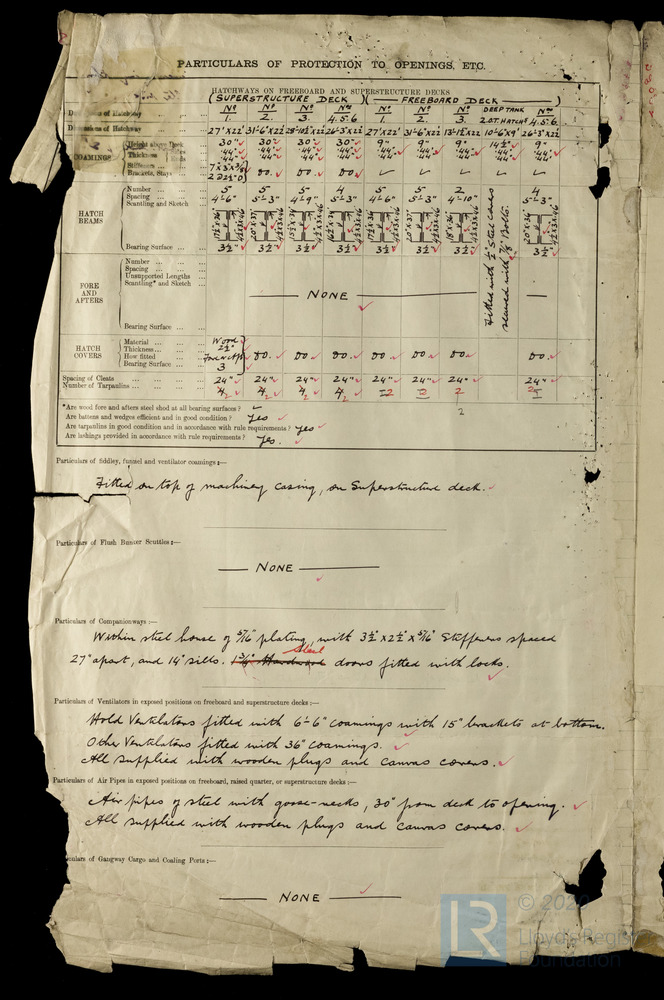 PARTICULARS OF PROTECTION TO OPENINGS, ETC.
HATCHWAYS ON FREEBOARD AND SUPERSTRUCTURE DECKS
(SUPERSTRUCTURE DECK)( FREEBOARD DECK )
of Hatchway Nº 1. Nº 2. Nº 3. Nºs 4.5.6 Nº 1. Nº 2. Nº 3. DEEP TANK 2 O.T. HATCHS Nºs 4.5.6.
Dimensions of Hatchway 27'x22' 31'-6"x22' 26'-3"x22' 27'x22' 31'-6"x22' 10'-6"x9' 26'-3"x22'
COAMINGS
Height above Deck 30" 30" 30" 30" 9" 9" 9" 14½" 9"
Thickness .44" .44" .44" .44" .44" .44" .44" .44" .44"
.44" .44" .44" .44" .44" .44" .44" .44" .44"
Stiffeners
Brackets, Stays DO. DO. DO.
HATCH BEAMS
Number 5 5 5 4 5 5 2 4
Spacing 4'-6" 5'-3" 4'-9" 5'-3" 4'-6" 5'-3" 4'-10" 5'-3"
Scantling and Sketch
Fitted with ½" Steel Covers
secured with ⅞" Bolts.
Bearing Surface 3½" 3½" 3½" 3½" 3½" 3½" 3½" 3½"
FORE AND AFTERS
Number
Spacing
Unsupported Lengths
Scantling* and Sketch
NONE
Bearing Surface
HATCH COVERS
Material Wood
Thickness 2½"
How fitted Fore & Aft DO. DO. DO. DO. DO. DO. DO.
Bearing Surface 3
Spacing of Cleats 24" 24" 24" 24" 24" 24" 24" 24"
Number of Tarpaulins 2 2 2 2 2 2 2 2
2
*Are wood fore and afters steel shod at all bearing surfaces?
Are battens and wedges efficient and in good condition? Yes
Are tarpaulins in good condition and in accordance with rule requirements? Yes
Are lashings provided in accordance with rule requirements? Yes.
Particulars of fiddley, funnel and ventilator coamings:—
Fitted on top of machinery casing, on Superstructure deck.
Particulars of Flush Bunker Scuttles:—
NONE
Particulars of Companionways:—
Within steel house of 5/16" plating, with 3½" x 2½" x 5/16" Stiffeners spaced
Steel
27" apart, and 14" sills. 1¾" Hardwood doors fitted with locks.
Particulars of Ventilators in exposed positions on freeboard and superstructure decks:—
Hold Ventilators fitted with 6'-6" coamings with 15" brackets at bottom.
Other Ventilators fitted with 36" coamings.
All supplied with wooden plugs and canvas covers.
Particulars of Air Pipes in exposed positions on freeboard, raised quarter, or superstructure decks:—
Air pipes of steel with goose-necks, 30" from deck to opening.
All supplied with wooden plugs and canvas covers.
of Gangway Cargo and Coaling Ports:—
NONE
LR
© 2020
Lloyd's Register
Foundation